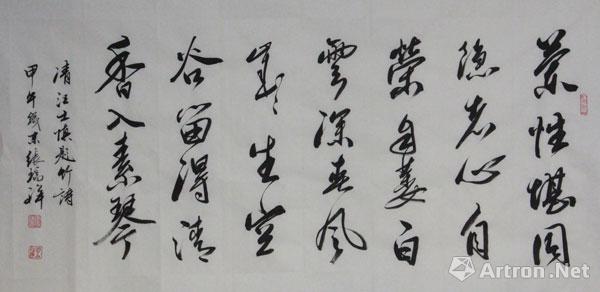 蘭性堪同
隐者心自
榮自萎白
雲深春风
歲々生空
谷留得清
香入素琴
清汪士慎题竹詩
甲午歲末張瑞祥
Artron.Net